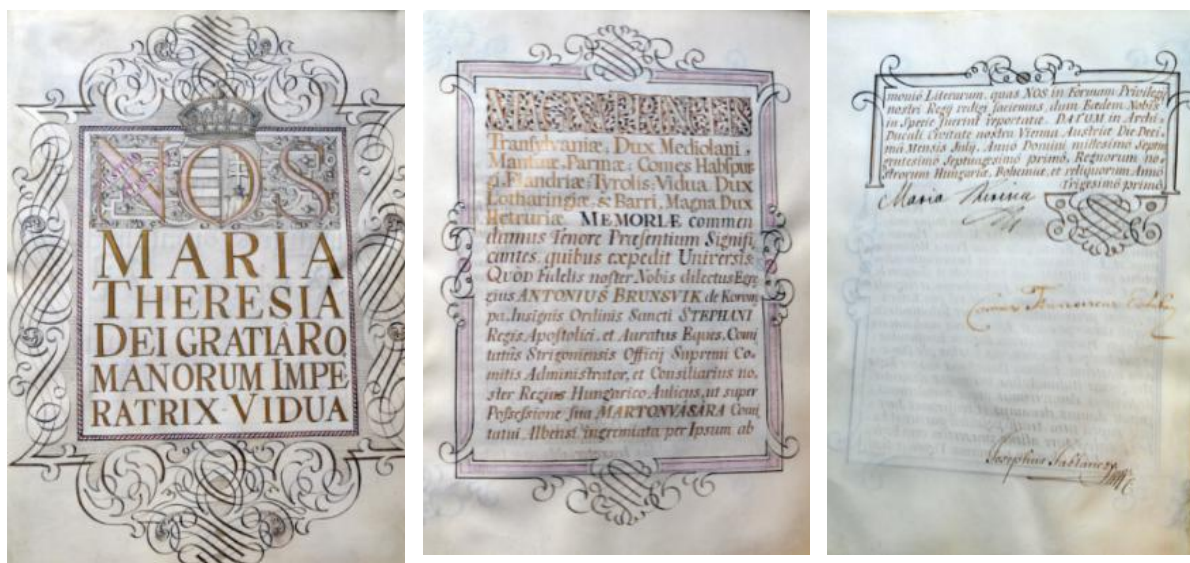 NOS
MARIA
THERESIA
DEI GRATIÂ RO
MANORUM IMPE
RATRIX VIDUA
MAGNA PRINCEPS
Tranſylvaniæ, Dux Mediolani,
Mantuæ, Parmæ, Comes Habſpur
gi, Flandriæ, Tyrolis, Vidua Dux
Lotharingiæ, & Barri, Magna Dux
Hetruriæ. MEMORIÆ commen
damus Tenore Præſentium Signifi,
cantes, quibus expedit Universis.
QUOD Fidelis noſter Nobis dilectus Egre
gius ANTONIUS BRUNSVIK de Korom
pa, Insignis Ordinis Sancti STEPHANI
Regis Apoſtolici, et Auratus Eques, Comi
tatûs Strigoniensis Officij Supremi Co-
mitis Administrator, et Consiliarius no,
ster Regius Hungarico Aulicus, ut super
Poſseſsione ſua MARTONVÁSÁRA Comi
tatui Albensi ingremiata per Ipsum ab
monió Literarum, quas NOS in Formam Privilegij
nostri Regij redigi faciemus, dum Eædem Nobis
in Specie fuerint reportatæ. DATUM in Archi-
Ducali Civitate nostra Vienna Austriæ Die Deci-
mâ Mensis Julij, Anno Domini millesimô Septin
gentesimô Septuagesimô primô, Regnorum no-
strorum Hungariæ, Bohemiæ, et reliquorum Annô
Trigesimô primô.
Maria Theresia
Comes Franciscus
Josephus Jablanczy